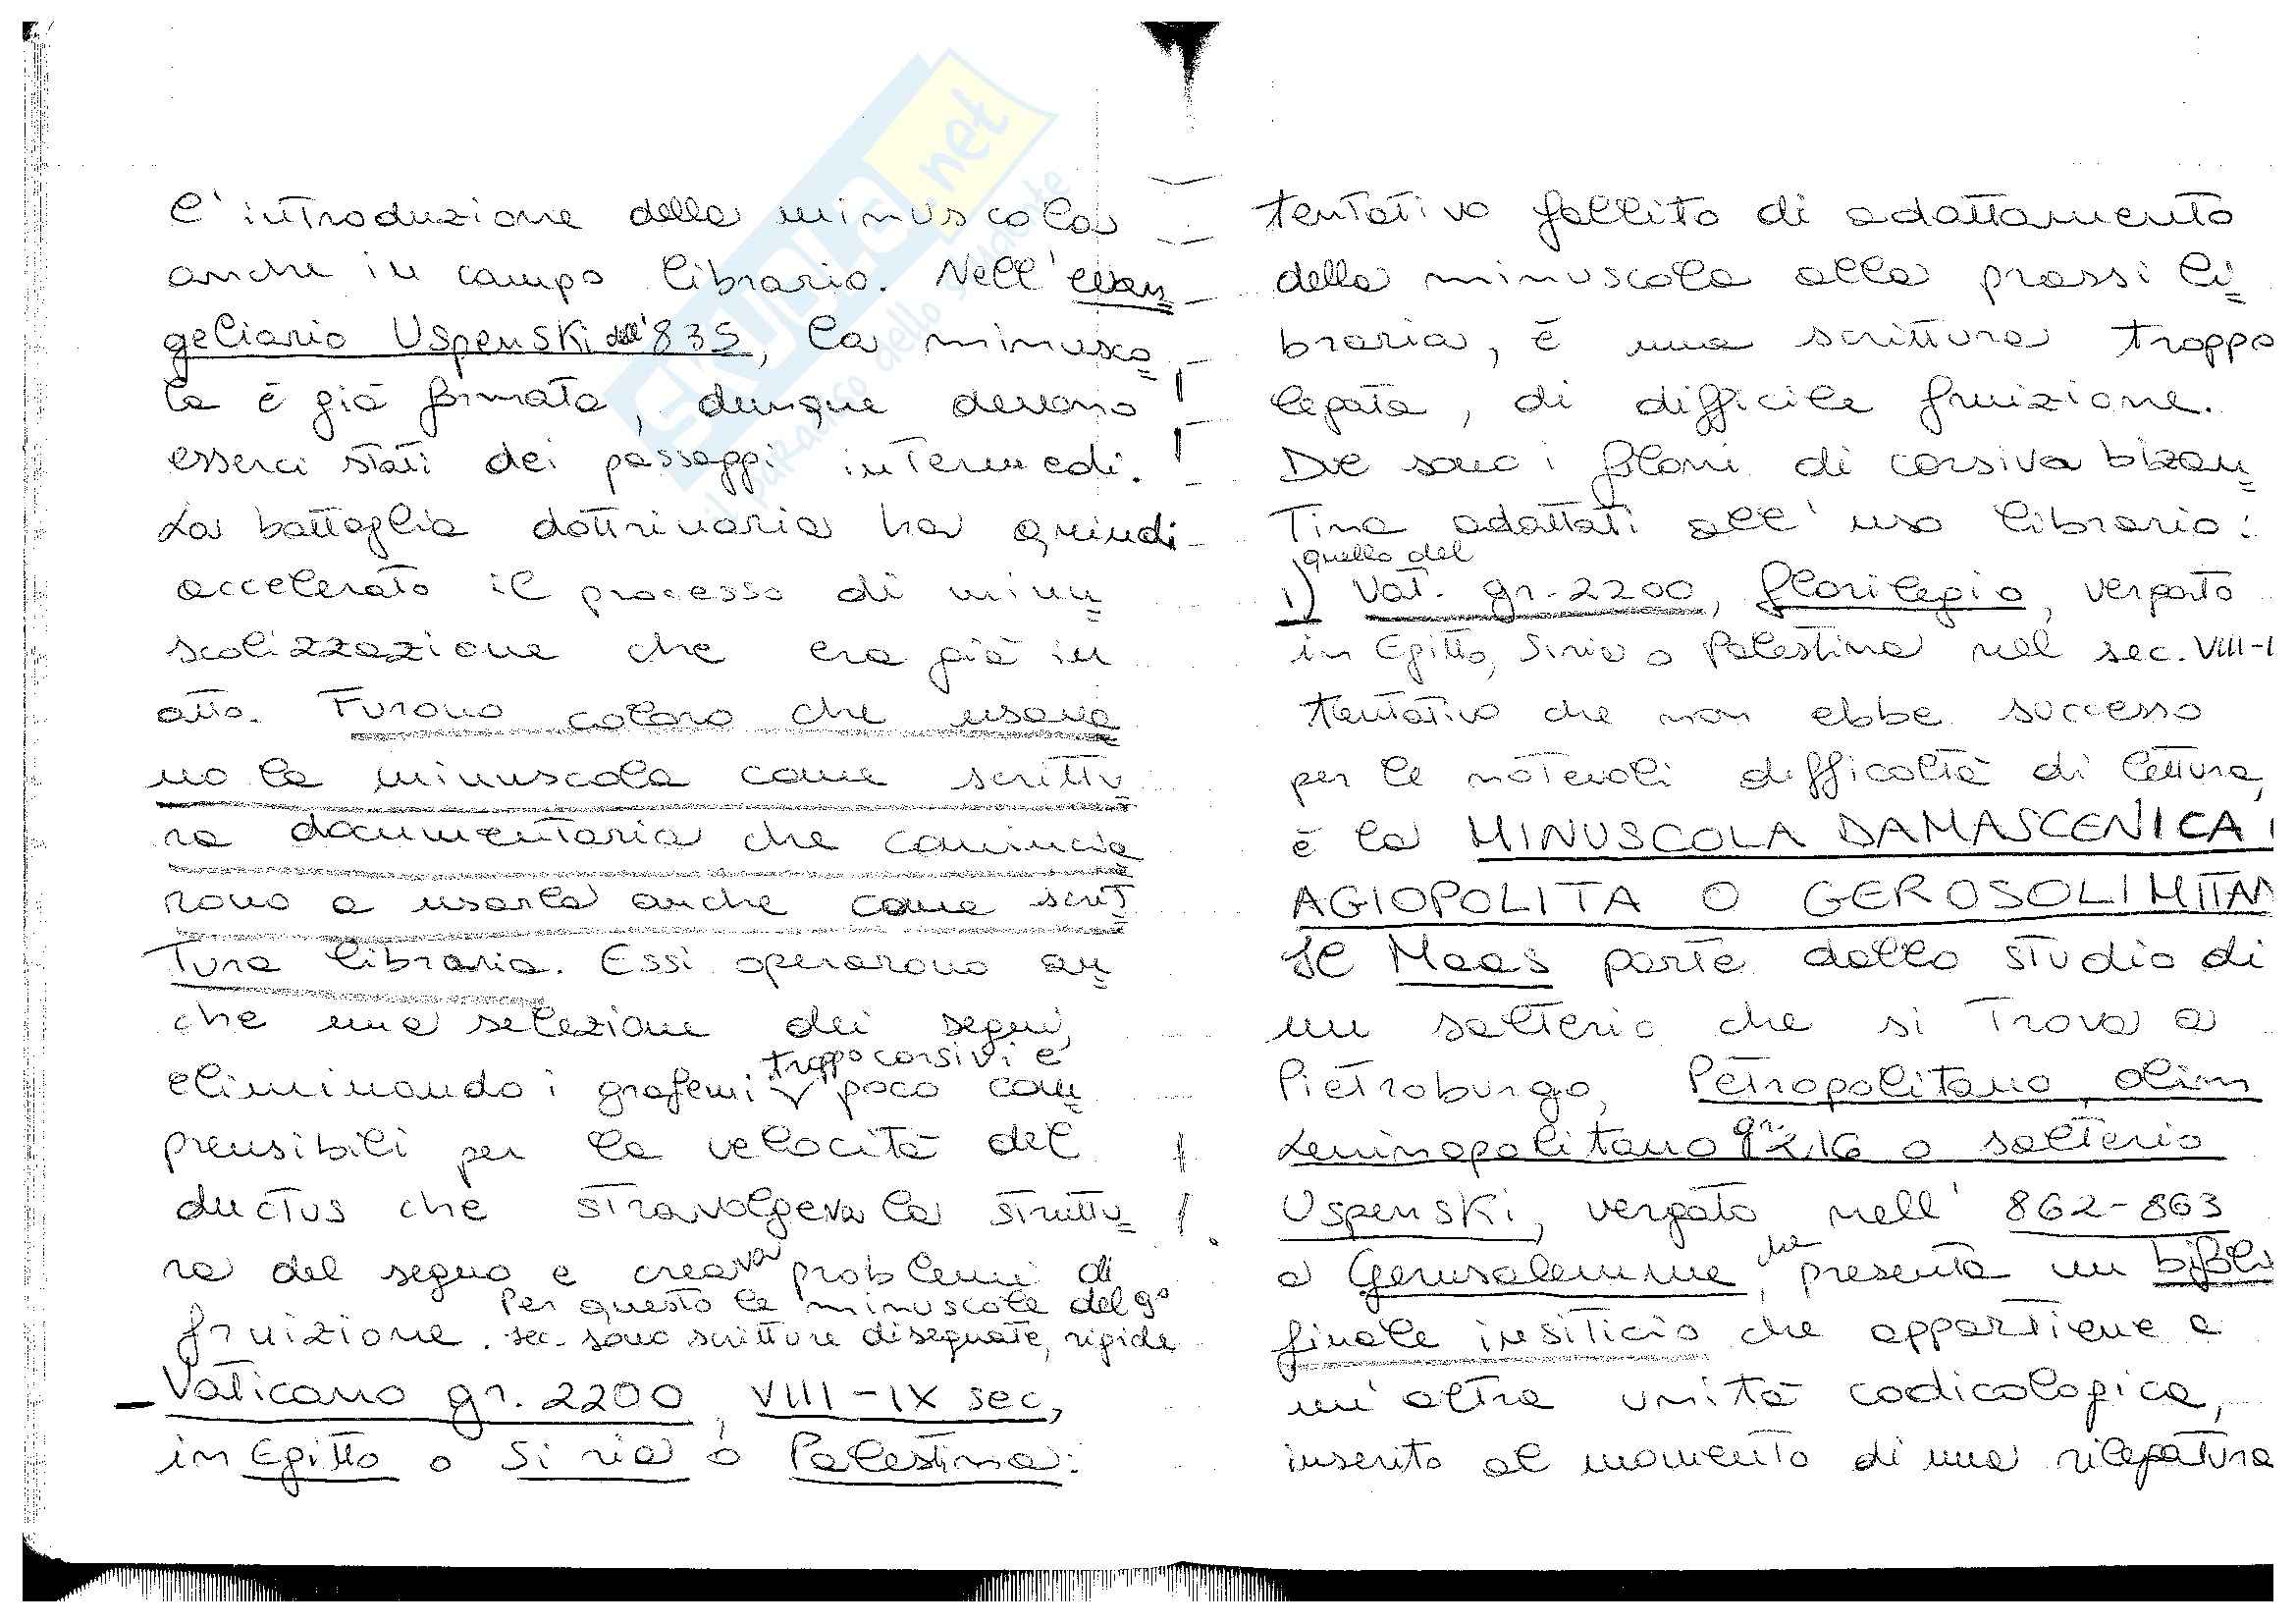 l'introduzione della minuscola
anche in campo librario. Nell'evan=
geliario Uspenski dell'835, la minusco=
la è già formata, dunque devono
esserci stati dei passaggi intermedi.
La battaglia dottrinaria ha quindi
accelerato il processo di minu=
scolizzazione che era già in
atto. Furono coloro che usava=
no la minuscola come scrittu=
ra documentaria che comincia=
rono a usarla anche come scrit=
tura libraria. Essi operarono an=
che una selezione dei segni,
troppo corsivi e
eliminando i grafemi poco com=
prensibili per la velocità del
ductus che stravolgeva la struttu=
ra del segno e creava problemi di
Per questo le minuscole del 9°
fruizione. sec. sono scritture disegnate, rigide
- Vaticano gr. 2200, VIII-IX sec,
in Egitto o Siria o Palestina:
tentativo fallito di adattamento
della minuscola alla prassi li=
braria, è una scrittura troppo
legata, di difficile fruizione.
Due sono i filoni di corsiva bizan=
tina adattati all'uso librario:
quello del
1) Vat. gr. 2200, florilegio, vergato
in Egitto, Siria o Palestina nel sec. VIII-I
tentativo che non ebbe successo
per le notevoli difficoltà di lettura,
è la MINUSCOLA DAMASCENICA
AGIOPOLITA O GEROSOLIMITAN
Il Maas parte dallo studio di
un salterio che si trova a
Pietroburgo, Petropolitano, olim
Leninopolitano gr. 216 o salterio
Uspenski, vergato nell'862-863
a Gerusalemme, che presenta un bifoli
finale insiticio che appartiene a
un'altra unità codicologica,
inserito al momento di una rilegatura
skuola.net
il paradiso dello studente